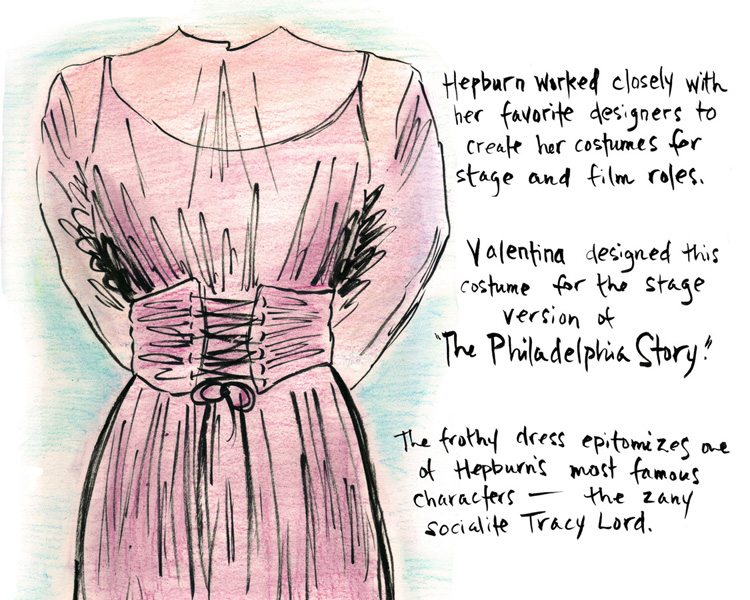 Hepburn worked closely with
her favorite designers to
create her costumes for
stage and film roles.
Valentina designed this
costume for the stage
version of
"The Philadelphia Story."
The frothy dress epitomizes one
of Hepburn's most famous
characters — the zany
socialite Tracy Lord.